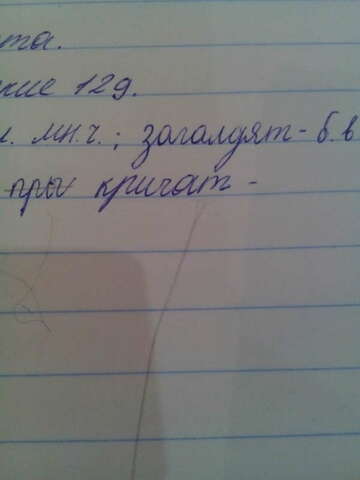 та.
ние 129.
л. мн.ч.; загалдят - б.в
при кричат -